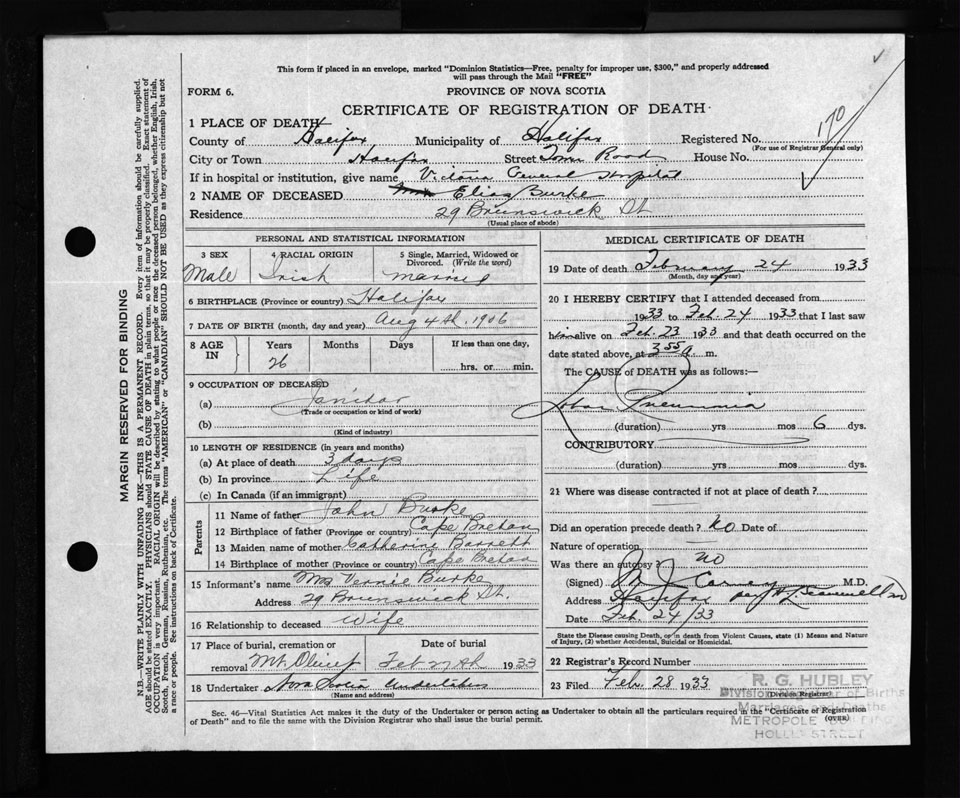 This form if placed in an envelope, marked "Dominion Statistics—Free, penalty for improper use, $300," and properly addressed
will pass through the Mail "FREE"
FORM 6.
PROVINCE OF NOVA SCOTIA
CERTIFICATE OF REGISTRATION OF DEATH
170
1 PLACE OF DEATH
County of Halifax Municipality of Halifax Registered No.
(For use of Registrar General only)
City or Town Halifax Street Tower Road House No.
If in hospital or institution, give name Victoria General Hospital
2 NAME OF DECEASED Elias Burke
Residence 29 Brunswick St
(Usual place of abode)
PERSONAL AND STATISTICAL INFORMATION
3 SEX 4 RACIAL ORIGIN 5 Single, Married, Widowed or
Divorced. (Write the word)
Male Irish married
6 BIRTHPLACE (Province or country) Halifax
7 DATE OF BIRTH (month, day and year) Aug 4th, 1906
8 AGE IN Years Months Days If less than one day,
26 hrs. or min.
9 OCCUPATION OF DECEASED
(a) Janitor
(Trade or occupation or kind of work)
(b)
(Kind of industry)
10 LENGTH OF RESIDENCE (in years and months)
(a) At place of death 3 days
(b) In province Life
(c) In Canada (if an immigrant)
Parents
11 Name of father John Burke
12 Birthplace of father (Province or country) Cape Breton
13 Maiden name of mother Catherine Barrett
14 Birthplace of mother (Province or country) Cape Breton
15 Informant's name Mrs Vernie Burke
Address 29 Brunswick St.
16 Relationship to deceased Wife
17 Place of burial, cremation or Date of burial
removal Mt. Olivet Feb 27th 1933
18 Undertaker Nova Scotia Undertaking
(Name and address)
MEDICAL CERTIFICATE OF DEATH
19 Date of death February 24 1933
(Month, day and year)
20 I HEREBY CERTIFY that I attended deceased from
1933 to Feb. 24 1933 that I last saw
him alive on Feb. 23 1933 and that death occurred on the
date stated above, at 3 55 a m.
The CAUSE of DEATH was as follows:
Lobar Pneumonia
(duration) yrs mos 6 dys.
CONTRIBUTORY
(duration) yrs mos dys.
21 Where was disease contracted if not at place of death?
Did an operation precede death? No Date of
Nature of operation
Was there an autopsy? no
(Signed) Carney M.D.
Address Halifax per
Date Feb. 24/33
State the Disease causing Death, or in death from Violent Causes, state (1) Means and Nature
of Injury, (2) whether Accidental, Suicidal or Homicidal.
22 Registrar's Record Number
23 Filed Feb. 28 1933
(Division Registrar)
R. G. HUBLEY
Division Registrar of Births
Marriages and Deaths
METROPOLE BUILDING
HOLLIS STREET
Sec. 46—Vital Statistics Act makes it the duty of the Undertaker or person acting as Undertaker to obtain all the particulars required in the "Certificate of Registration
of Death" and to file the same with the Division Registrar who shall issue the burial permit.
(OVER)
MARGIN RESERVED FOR BINDING
N.B.—WRITE PLAINLY WITH UNFADING INK—THIS IS A PERMANENT RECORD. Every item of information should be carefully supplied.
AGE should be stated EXACTLY. PHYSICIANS should STATE CAUSE OF DEATH in plain terms, so that it may be properly classified. Exact statement of
OCCUPATION is very important. RACIAL ORIGIN will be described by stating to what people or race the deceased person belonged, whether English, Irish,
Scotch, French, German, Russian, Ruthenian, etc. The terms "AMERICAN" or "CANADIAN" SHOULD NOT BE USED as they express citizenship but not
a race or people. See instructions on back of Certificate.